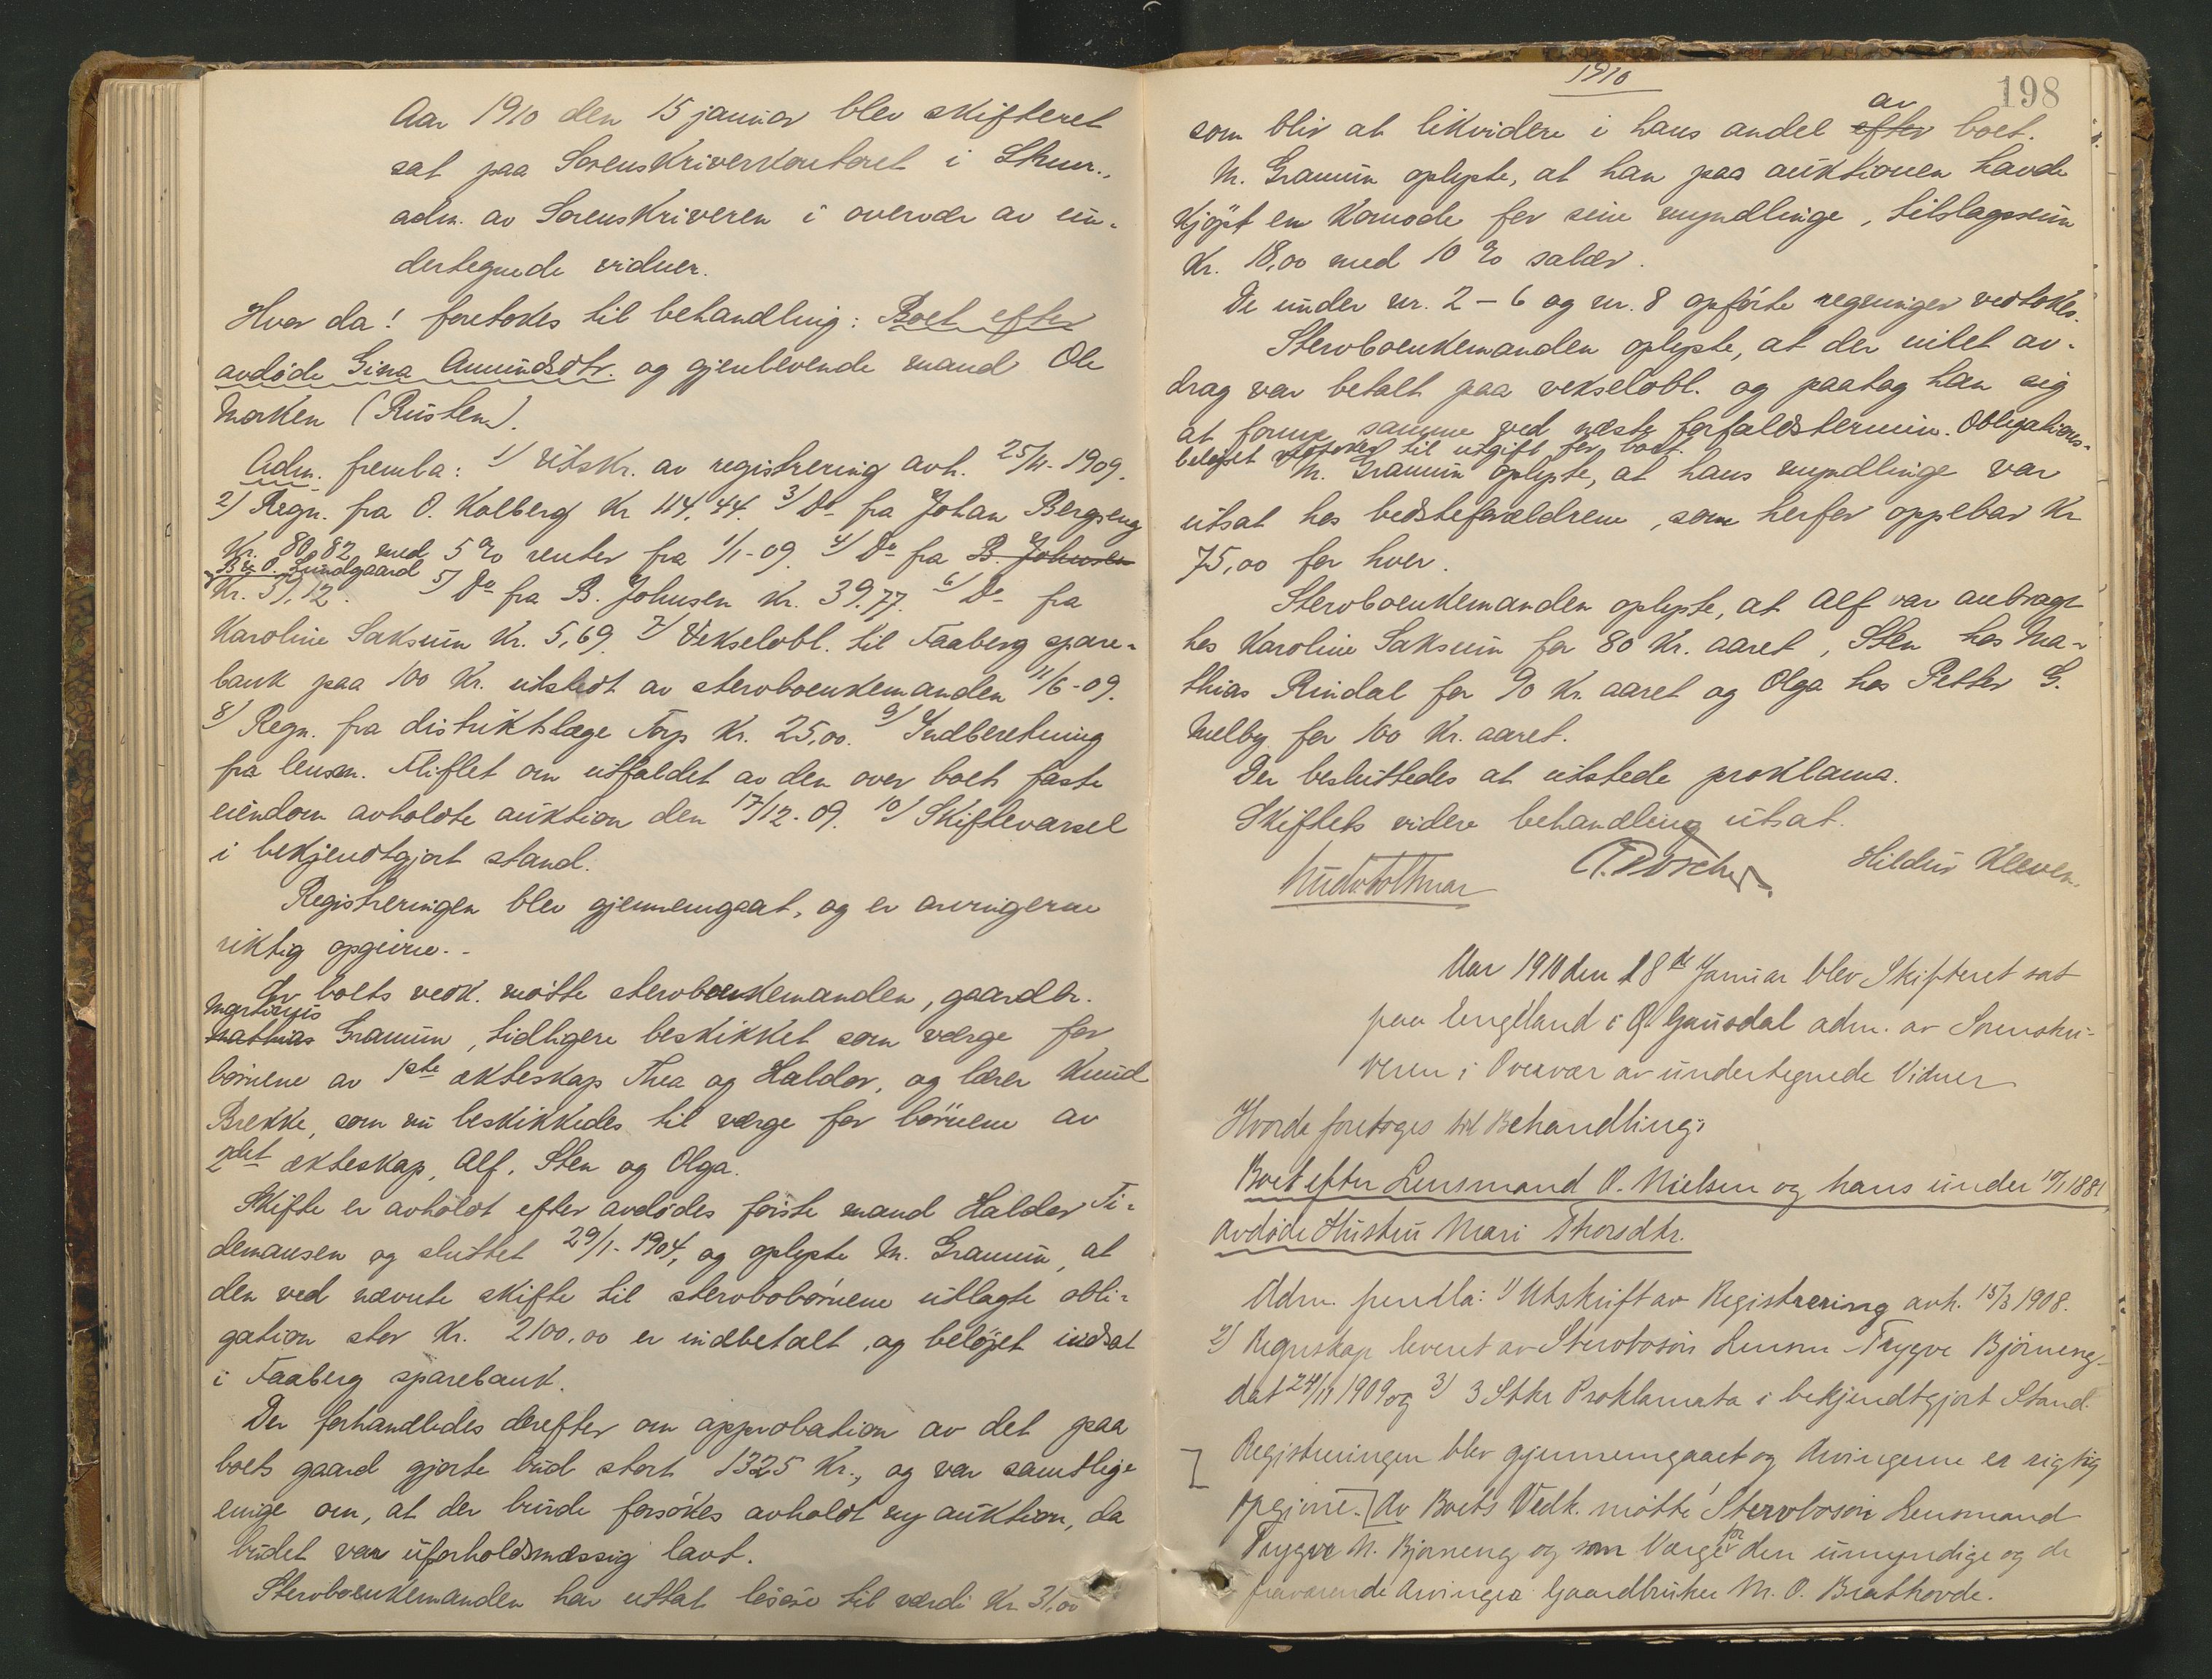 Aar 1910 den 15 januar blev skifteret
sat paa Sorenskriverkontoret i Lhmr.,
adm. av Sorenskriveren i overvær av un-
dertegnede vidner.
Hvor da! foretokes til behandling: Boet efter
avdøde Gina Amundsdtr. og gjenlevende mand Ole
Morken (Rusten).
Adm. fremla: 1/ Utskr. av registrering avh. 25/11-1909.
2/ Regn. fra O. Kolberg Kr 114,44. 3/ Do fra Johan Bergseng
Kr. 80,82 med 5 % renter fra 1/1-09. 4/ Do fra B. Johnsen
Br. O. Lundgaard
Kr. 51,12. 5/ Do fra B. Johnsen Kr. 39.77. 6/ Do fra
Karoline Saksum Kr. 5,69. 7/ Vekselobl. til Faaberg spare-
bank paa 100 Kr. utstedt av stervboenkemanden 11/6-09.
8/ Regn. fra distriktslæge Torp Kr. 25,00. 9/ Indberetning
fra lensm. Fliflet om utfaldet av den over boets faste
eiendom avholdte auktion den 17/12-09. 10/ Skiftevarsel
i bekjendtgjort stand.
Registreringen blev gjennemgaat, og er arvingerne
riktig opgivne.-
Av boets vedk. møtte stervboenkemanden, gaardbr.
Martinus
Mathias Gramum, tidligere beskikket som verge for
børnene av 1ste ekteskap Thea og Haldor, og lærer Knud
Brekke, som nu beskikkedes til verge for børnene av
2det ekteskap, Alf, Sten og Olga.
Skifte er avholdt efter avdødes første mand Haldor Ti-
demansen og sluttet 29/1-1904, og oplyste M. Gramum, at
den ved nævnte skifte til stervbobørnene utlagte obli-
gation stor Kr. 2100,00 er indbetalt, og beløpet indsat
i Faaberg sparebank.
Der forhandledes derefter om approbation av det paa
boets gaard gjorte bud stort 1325 Kr., og var samtlige
enige om, at der burde forsøkes avholdt ny auktion, da
budet var uforholdsmæssig lavt.
Stervboenkemanden har uttat løsøre til værdi Kr. 31,00
1910
198
av
som blir at likvidere i hans andel efter boet.
M. Gramum oplyste, at han paa auktionen havde
kjøpt en Komode for sine myndlinge, tilslagssum
Kr. 18,00 med 10 % salær.
De under nr. 2 – 6 og nr. 8 opførte regninger vedtokes.
Stervboenkemanden oplyste, at der intet av-
drag var betalt paa vekselobl. og paatog han sig
at forny samme ved næste forfaldstermin. Obligations-
beløpet vedtokes til utgift for boet.
M. Gramum oplyste, at hans myndlinge var
utsat hos bedsteforældrene, som herfor oppebar Kr
75,00 for hver.
Stervboenkemanden oplyste, at Alf var anbragt
hos Karoline Saksum for 80 Kr. aaret, Sten hos Ma-
thias Rindal for 90 Kr. aaret og Olga hos Petter G.
Melby for 100 Kr. aaret.
Der besluttedes at utstede proklama.
Skiftets videre behandling utsat.
Hildur Kleven.
Aar 1910 den 18de Januar blev Skifteret sat
paa Engeland i Ø. Gausdal adm. av Sorenskri-
veren i Overvær av undertegnede Vidner
Hvorda foretoges til Behandling:
Boet efter Lensmand O. Nielsen og hans under 10/1 1881
avdøde Hustru Mari Thorsdtr.
Adm. fremla: 1/ Utskrift av Registrering avh. 15/3 1908.
2/ Regnskap leveret av Stervbosøn Lensm. Trygve Bjørneng
dat 24/11 1909 og 3/ 3 Stkr Proklamata i bekjendtgjort Stand.
Registreringen blev gjennemgaaet og Arvingerne er rigtig
opgivne. Av Boets Vedk. møtte Stervbosøn Lensmand
Trygve N. Bjørneng og som Værge for den umyndige og de
fraværende Arvinger Gaardbruker M. O. Brathovde.